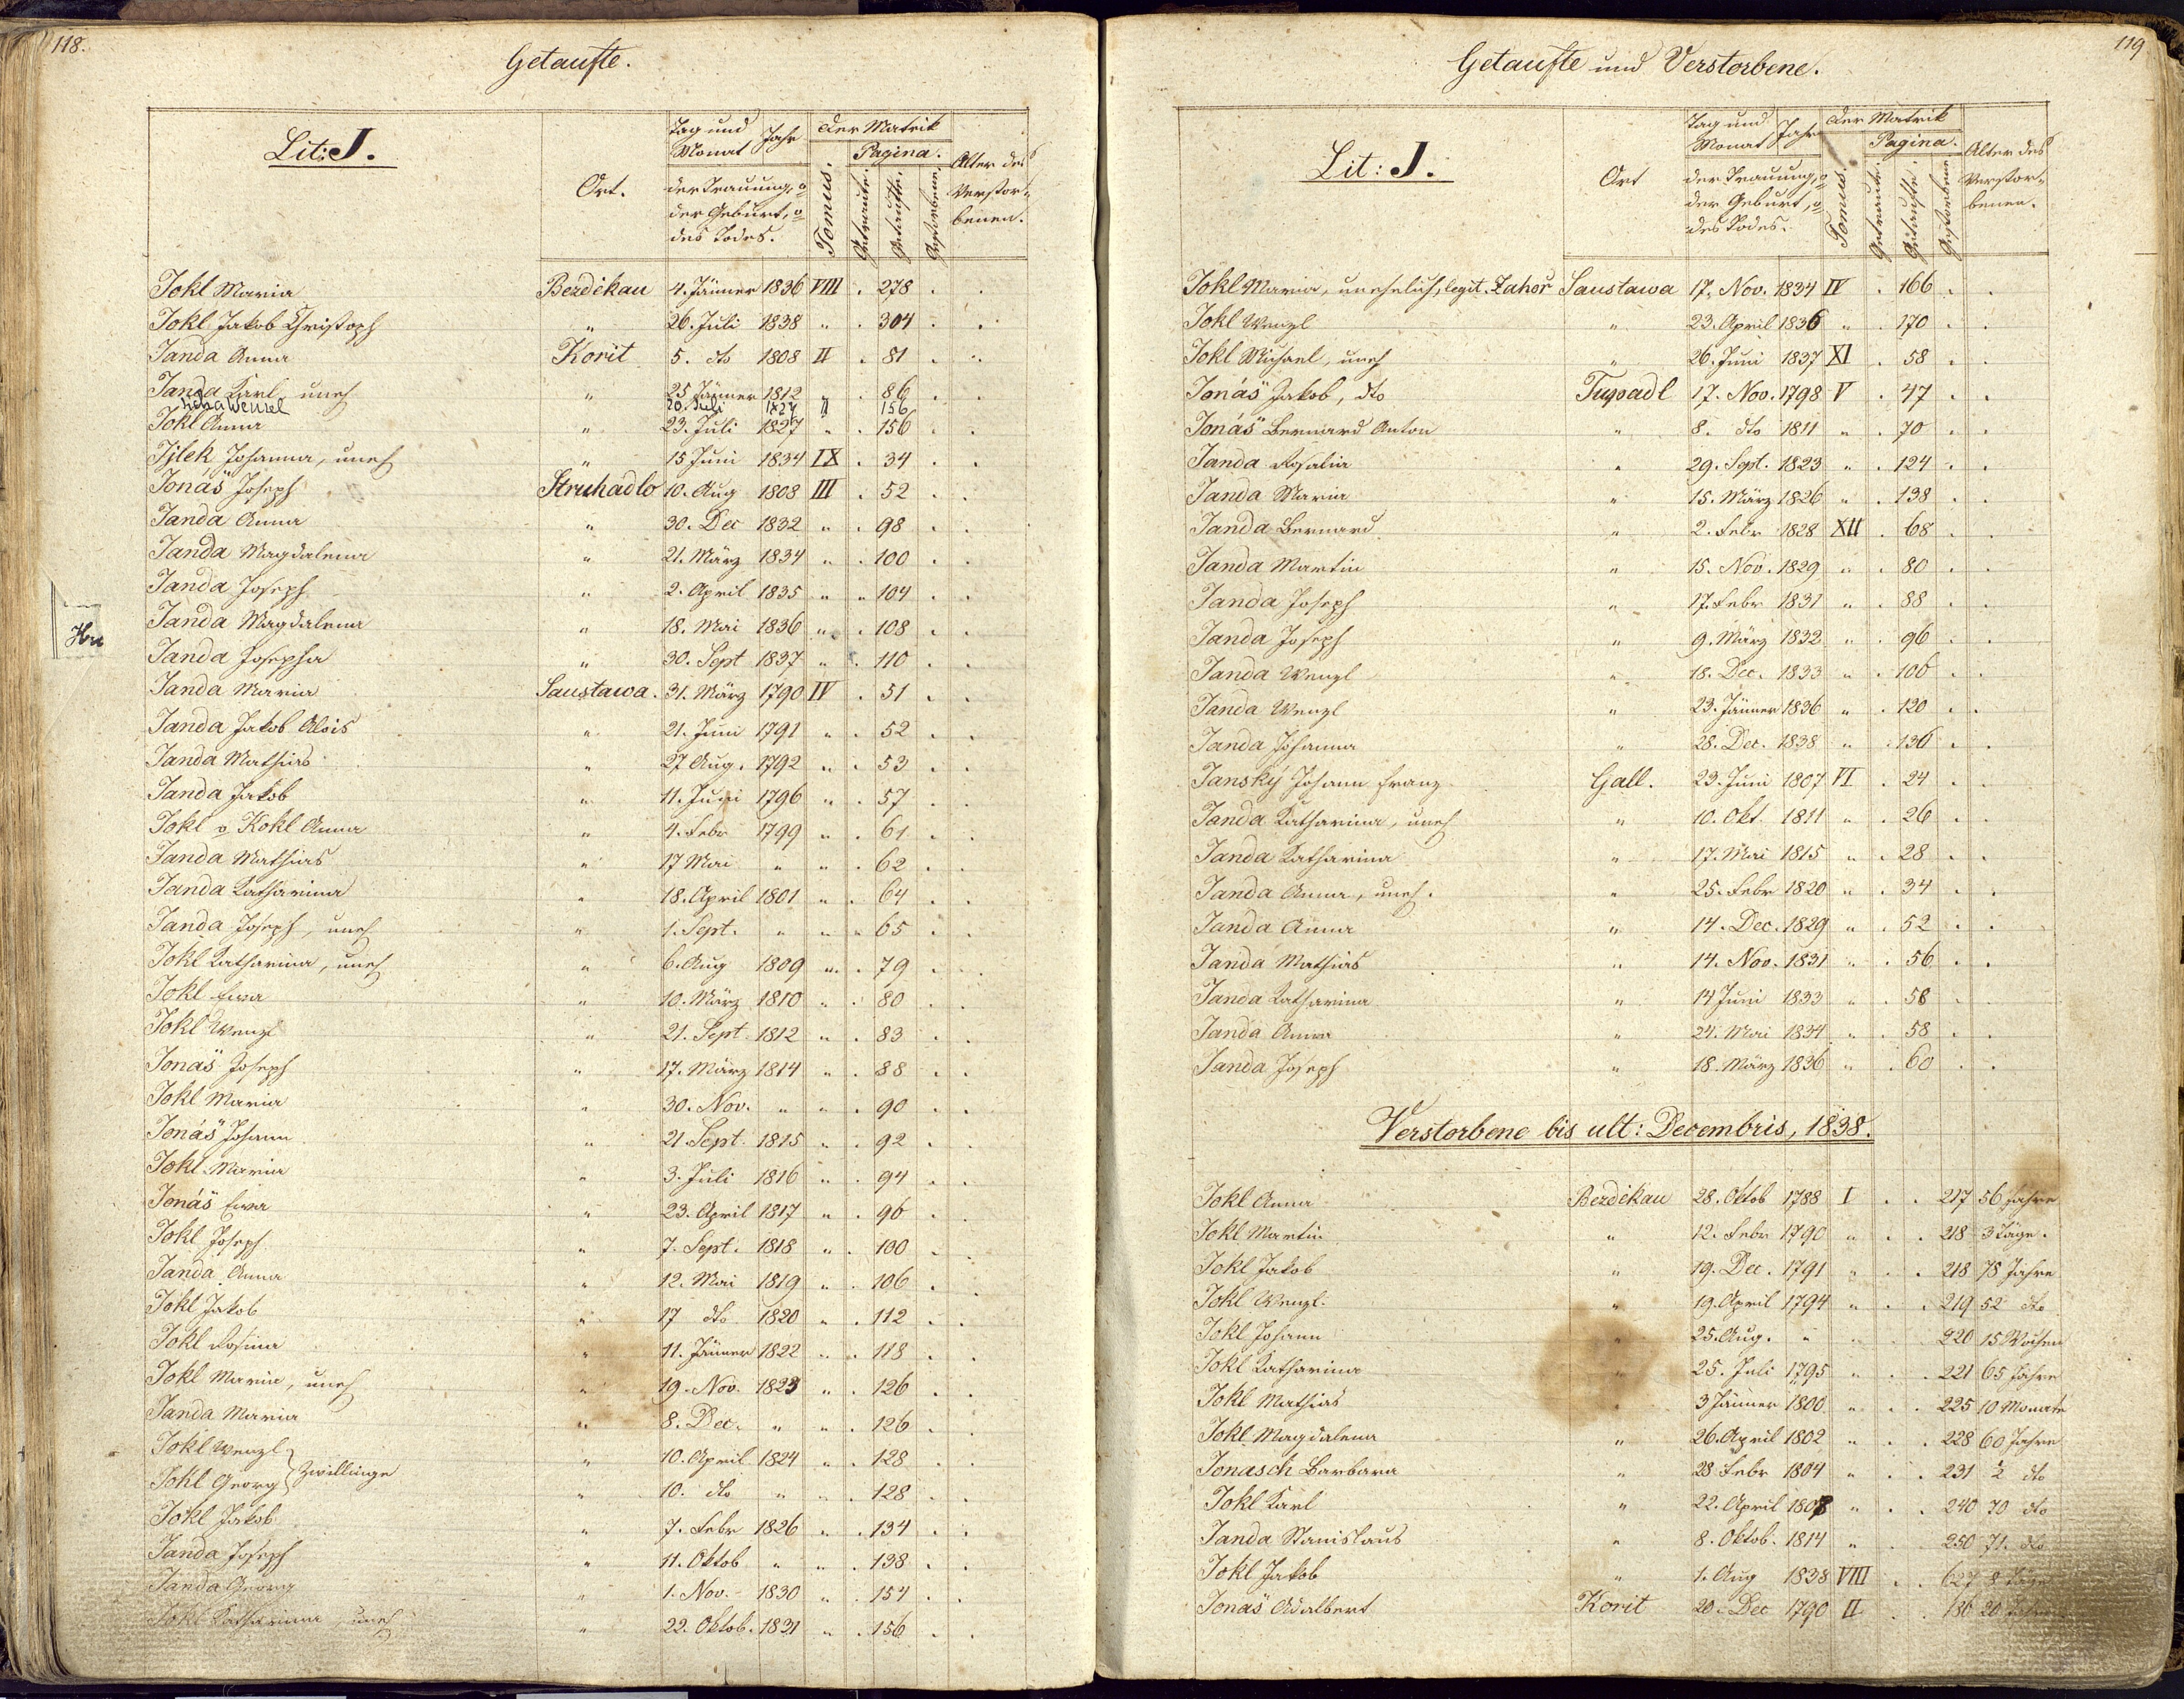 118.
Getaufte.
Lit: J.
Ort.
Tag und Monat Jahr
der Trauung, o
der Geburt, o
des Todes.
der Matrik
Tomus.
Pagina.
Getraute.
Getaufte.
Gestorbene.
Alter des Verstorbenen.
Jokl Maria Bezdëkau 4. Jänner 1836 VIII . 278 . .
Jokl Jakob Christoph " 26. Juli 1838 " . 304 . .
Janda Anna Korit 5. dto 1808 II . 81 . .
Janda Karl uneh " 25 Jänner 1812 " . 86 . .
Wenzel 20. Juli 1827 II 156
Jokl Anna " 23. Juli 1827 " . 156 . .
Jjlek Johanna, uneh " 15 Juni 1834 IX . 34 . .
Jonáš Joseph Struhadlo 10. Aug 1808 III . 52 . .
Janda Anna " 30. Dec 1832 " . 98 . .
Janda Magdalena " 21. März 1834 " . 100 . .
Janda Joseph " 2. April 1835 " " 104 . .
Janda Magdalena " 18. Mai 1836 " . 108 . .
Janda Josepha " 30. Sept 1837 " . 110 . .
Janda Maria Saustawa. 31. März 1790 IV . 51 . .
Janda Jakob Alois " 21. Juni 1791 " . 52 . .
Janda Mathias " 27 Aug. 1792 " . 53 . .
Janda Jakob " 11. Juni 1796 " . 57 . .
Jokl o Kokl Anna " 4. Febr 1799 " . 61 . .
Janda Mathias " 17 Mai " " . 62 . .
Janda Katharina " 18. April 1801 " . 64 . .
Janda Joseph, uneh " 1. Sept. " " " 65 . .
Jokl Katharina, uneh " 6. Aug 1809 " . 79 . .
Jokl Ewa " 10. März 1810 " . 80 . .
Jokl Wenzl " 21. Sept. 1812 " . 83 . .
Jonáš Joseph " 17. März 1814 " . 88 . .
Jokl Maria " 30. Nov. " " . 90 . .
Jonáš Johann " 21 Sept. 1815 " . 92 . .
Jokl Maria " 3. Juli 1816 " . 94 . .
Jonáš Ewa " 23. April 1817 " . 96 . .
Jokl Joseph " 7. Sept. 1818 " . 100 . .
Janda Anna " 12. Mai 1819 " . 106 . .
Jokl Jakob " 17 dto 1820 " . 112 . .
Jokl Rosina " 11. Jänner 1822 " . 118 . .
Jokl Maria, uneh " 19. Nov. 1823 " . 126 . .
Janda Maria " 8. Dec. " " . 126 . .
Jokl Wenzl " 10. April 1824 " . 128 . .
Zwillinge
Jokl Georg " 10. dto " " . 128 . .
Jokl Jakob " 7. Febr 1826 " . 134 . .
Janda Joseph " 11. Oktob " " . 138 . .
Janda Georg " 1. Nov. 1830 " . 154 . .
Jokl Katharina, uneh " 22. Oktob. 1831 " . 156 . .
119
Getaufte und Verstorbene.
Lit: J.
Ort
Tag und Monat Jahr
der Trauung, o
der Geburt, o
des Todes.
der Matrik
Tomus.
Pagina.
Getraute
Getaufte
Gestorbene
Alter des Verstorbenen.
Jokl Maria, unehelich, legit. Zahoř Saustawa 17. Nov. 1834 IV . 166 . .
Jokl Wenzl " 23. April 1836 " . 170 . .
Jokl Michael, uneh " 26. Juni 1837 XI . 58 . .
Jonáš Jakob, dto Tupadl 17. Nov. 1798 V . 47 . .
Jonáš Bernard Anton " 8. dto 1811 " . 70 . .
Janda Rosalia " 29. Sept. 1823 " . 124 . .
Janda Maria " 15. März 1826 " . 138 . .
Janda Bernard " 2. Febr 1828 XII . 68 . .
Janda Martin " 15. Nov. 1829 " . 80 . .
Janda Joseph " 17. Febr 1831 " . 88 . .
Janda Joseph " 9. März 1832 " . 96 . .
Janda Wenzl " 18. Dec. 1833 " . 106 . .
Janda Wenzl " 23. Jänner 1836 " . 120 . .
Janda Johanna " 28. Dec. 1838 " . 136 . .
Janský Johann Franz Gall. 23. Juni 1807 VI . 24 . .
Janda Katharina, uneh " 10. Okt. 1811 " . 26 . .
Janda Katharina " 17. Mai 1815 " . 28 . .
Janda Anna, uneh. " 25. Febr 1820 " . 34 . .
Janda Anna " 14. Dec. 1829 " . 52 . .
Janda Mathias " 14. Nov. 1831 " . 56 . .
Janda Katharina " 14 Juni 1833 " . 58 . .
Janda Anna " 24. Mai 1834 " . 58 . .
Janda Joseph " 18. März 1836 " . 60 . .
Verstorbene bis ult: Decembris, 1838.
Jokl Anna Bezdëkau 28. Oktob 1788 I . . 217 56 Jahre
Jokl Martin " 12. Febr 1790 " . . 218 3 Täge.
Jokl Jakob " 19. Dec. 1791 " . . 218 75 Jahre
Jokl Wenzl. " 19. April 1794 " . . 219 52 dto
Jokl Johann " 25. Aug. " " . . 220 15 Wochen
Jokl Katharina " 25. Juli 1795 " . . 221 65 Jahre
Jokl Mathias " 3 Jänner 1800 " . . 225 10 Monate
Jokl Magdalena " 26. April 1802 " . . 228 60 Jahre
Jonasch Barbara " 28. Febr 1804 " . . 231 ½ dto
Jokl Karl " 22. April 1808 " . . 240 70 dto
Janda Stanislaus " 8. Oktob. 1814 " . . 250 71. dto
Jokl Jakob " 1. Aug 1838 VIII . . 627 8 Täge
Jonáš Adalbert Korit 20. Dec 1790 II . . 186 20